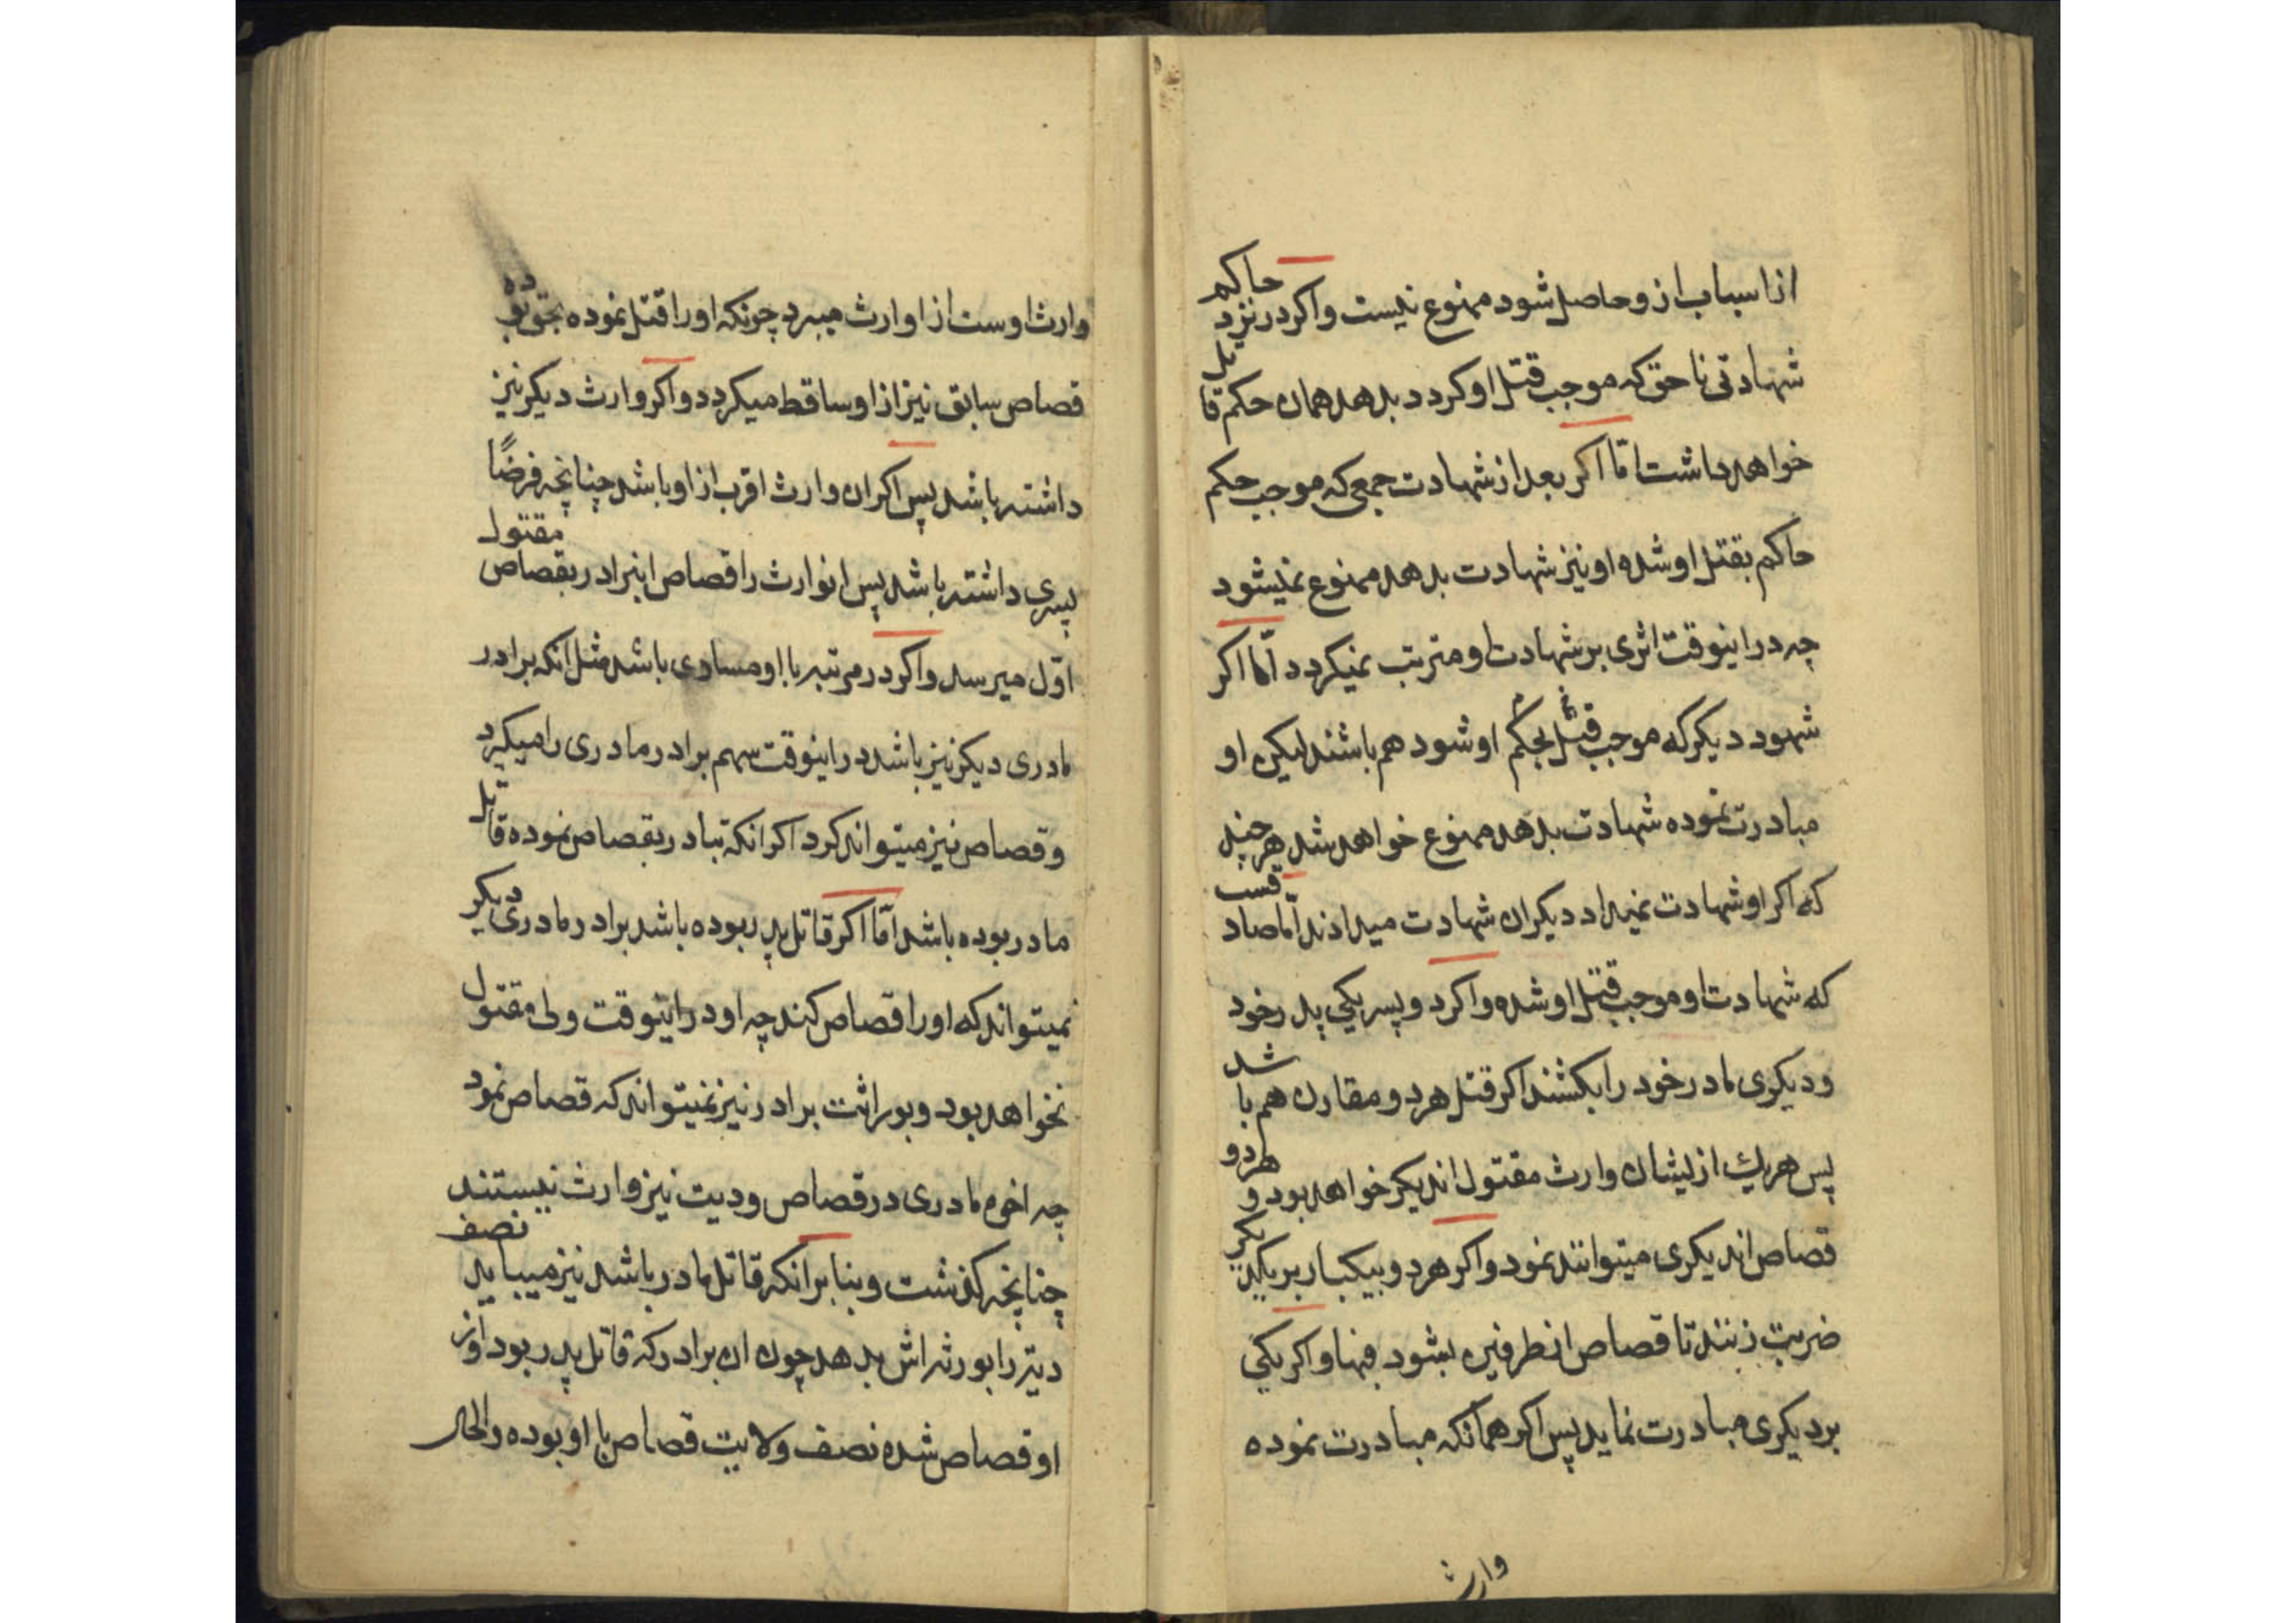 از اسباب از و حاصل شود ممنوع نیست و اکر در نزد حاکم
شهادتی ناحق که موجب قتل او کردد بدهد همان حکم قاتل
خواهد داشت امّا اکر بعد از شهادت جمعی که موجب حکم
حاکم بقتل او شده او نیز شهادت بدهد ممنوع نمیشود
چه در اینوقت اثری بر شهادت او مترتب نمیکردد امّا اکر
شهود دیکر که موجب قتل بحکم او شود هم باشند لیکن او
مبادرت نموده شهادت بدهد ممنوع خواهد شد هر چند
که اکر او شهادت نمیداد دیکران شهادت میدادند امّا صادقست
که شهادت او موجب قتل او شده و اکر دو پسر یکی پدر خود
و دیکری مادر خود را بکشند اکر قتل هر دو مقارن هم باشد
پس هر یك از ایشان وارث مقتول اندیکر خواهد بود و هر دو
قصاص اندیکری میتوانند نمود و اکر هر دو بیکبار بر یکدیکر
ضربت زنند تا قصاص از طرفین بشود فبها و اکر یکی
بر دیکری مبادرت نماید پس اکر همانکه مبادرت نموده
وارث
وارث اوست از او ارث میبرد چونکه او را قتل نموده بحق بوده
قصاص سابق نیز از او ساقط میکردد و اکر وارث دیکر نیز
داشته باشد پس اکر ان وارث اقرب از او باشد چنانچه فرضًا
پسری داشته باشد پس انوارث را قصاص اینرادر بقصاص مقتول
اوّل میرسد و اکر در مرتبه با او مساوی باشد مثل انکه برادر
مادری دیکر نیز باشد در اینوقت سهم برادر مادری را میکیرد
و قصاص نیز میتواند کرد اکر انکه تبادر بقصاص نموده قاتل
مادر بوده باشد امّا اکر قاتل پدر بوده باشد برادر مادری دیکر
نمیتواند که او را قصاص کند چه او در اینوقت ولی مقتول
نخواهد بود و بوراثت برادر نیز نمیتواند که قصاص نمود
چه اخوه مادری در قصاص و دیت نیز وارث نیستند
چنانچه کذشت و بنا بر انکه قاتل مادر باشد نیز میباید نصف
دیّه را بورثه اش بدهد چون ان برادر که قاتل پدر بود و از
او قصاص شده نصف ولایت قصاص با او بوده والحال